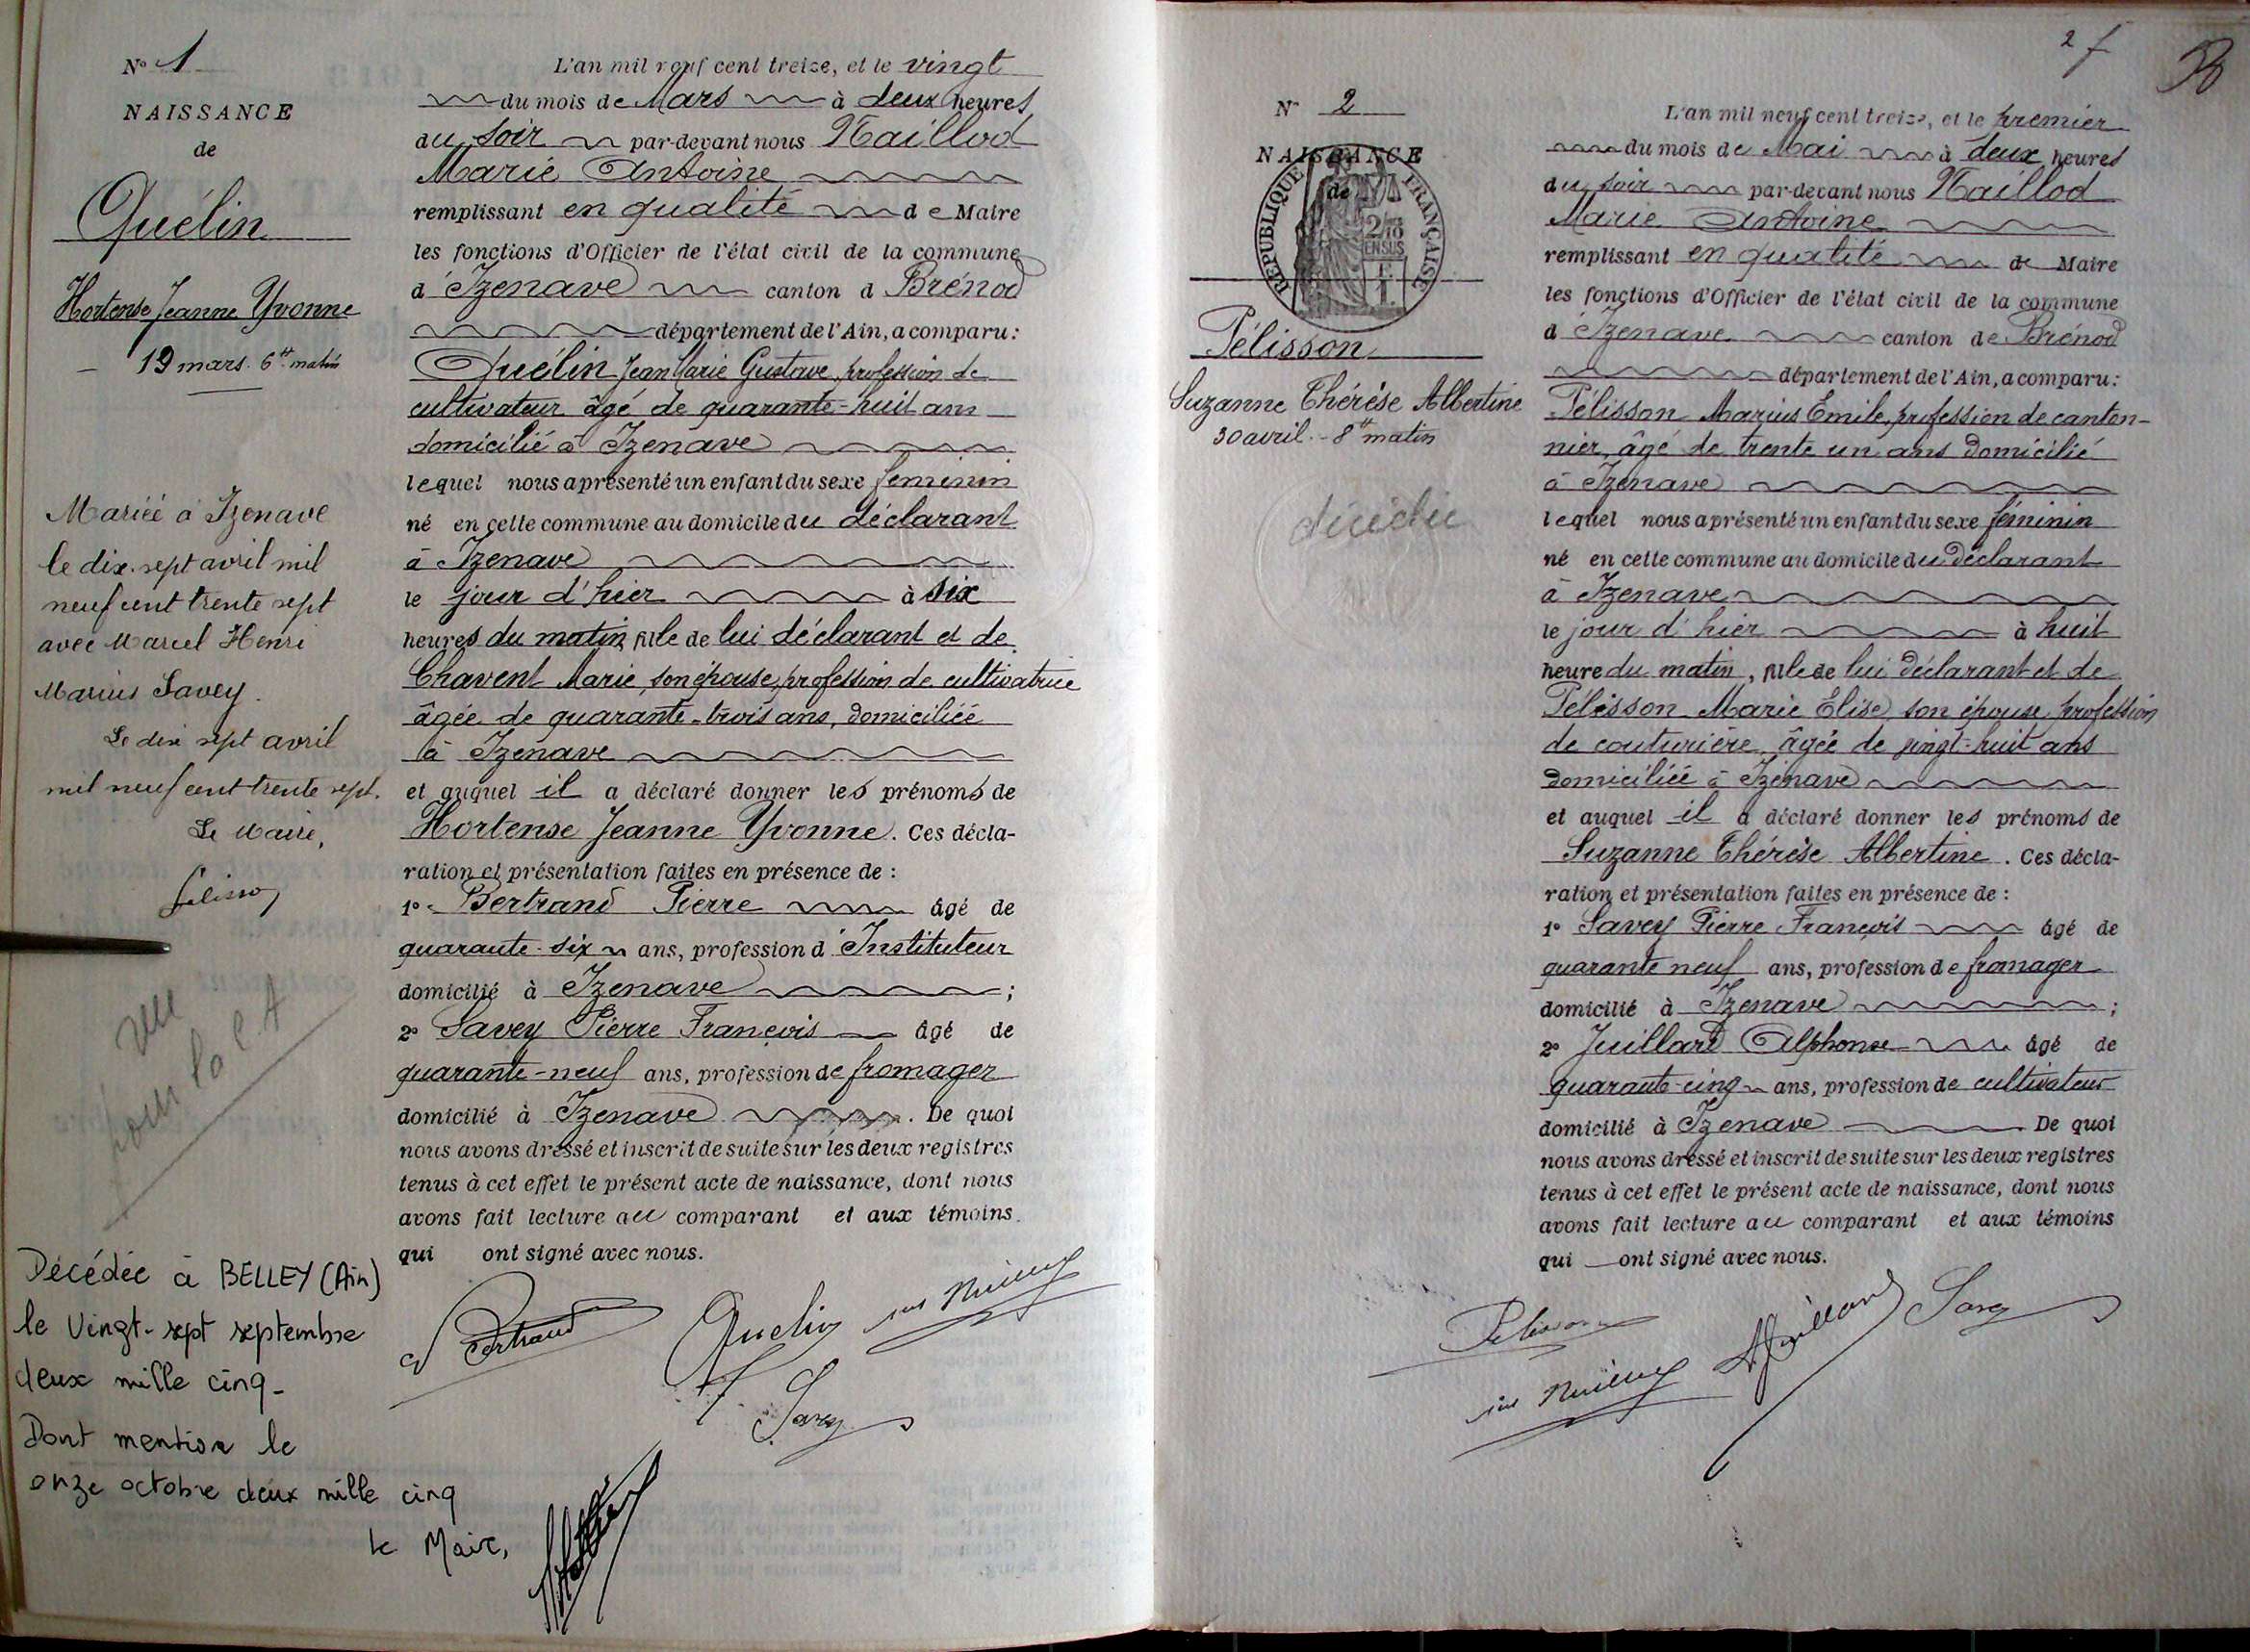 N° 1
NAISSANCE
de
Quélin
Hortense Jeanne Yvonne
19 mars. 6 H matin
Mariée à Izenave
le dix-sept avril mil
neuf cent trente sept
avec Marcel Henri
Marius Savey.
Le dix sept avril
mil neuf cent trente sept.
Le Maire,
vu
pour la C A
Décédée à BELLEY (Ain)
le Vingt-sept septembre
deux mille cinq_
Dont mention le
onze octobre deux mille cinq
le Maire,
L'an mil neuf cent treize, et le vingt
du mois de Mars à deux heures
du soir par-devant nous
Marie Antoine
remplissant en qualité de Maire
les fonctions d'Officier de l'état civil de la commune
d'Izenave canton d Brénod
département de l'Ain, a comparu :
Quélin Jean Marie Gustave, profession de
cultivateur âgé de quarante-huit ans
domicilié à Izenave
lequel nous a présenté un enfant du sexe féminin
né en cette commune au domicile du déclarant
à Izenave
le jour d'hier à six
heures du matin, fille de lui déclarant et de
Chavent Marie, son épouse, profession de cultivatrice
âgée de quarante-trois ans, domiciliée
à Izenave
et auquel il a déclaré donner les prénoms de
Hortense Jeanne Yvonne. Ces décla-
ration et présentation faites en présence de :
1° Bertrand Pierre âgé de
quarante-six ans, profession d'Instituteur
domicilié à Izenave ;
2° Savey Pierre François âgé de
quarante-neuf ans, profession de fromager
domicilié à Izenave . De quoi
nous avons dressé et inscrit de suite sur les deux registres
tenus à cet effet le présent acte de naissance, dont nous
avons fait lecture au comparant et aux témoins
qui ont signé avec nous.
Bertrand
Quelin
Savey
2 f
N° 2
NAISSANCE
de
REPUBLIQUE FRANÇAISE
Pélisson
Suzanne Thérèse Albertine
30 avril - 8 H matin
L'an mil neuf cent treize, et le premier
du mois de Mai à deux heures
du soir par-devant nous
Marie Antoine
remplissant en qualité de Maire
les fonctions d'Officier de l'état civil de la commune
d'Izenave canton de Brénod
département de l'Ain, a comparu :
Pélisson Marius Emile, profession de canton-
nier, âgé de trente un ans domicilié
à Izenave
lequel nous a présenté un enfant du sexe féminin
né en cette commune au domicile du déclarant
à Izenave
le jour d'hier à huit
heure du matin, fille de lui déclarant et de
Pélisson Marie Elise, son épouse, profession
de couturière, âgée de vingt-huit ans
domiciliée à Izenave
et auquel il a déclaré donner les prénoms de
Suzanne Thérèse Albertine. Ces décla-
ration et présentation faites en présence de :
1° Savey Pierre François âgé de
quarante neuf ans, profession de fromager
domicilié à Izenave ;
2° Juillard Alphonse âgé de
quarante-cinq ans, profession de cultivateur
domicilié à Izenave De quoi
nous avons dressé et inscrit de suite sur les deux registres
tenus à cet effet le présent acte de naissance, dont nous
avons fait lecture au comparant et aux témoins
qui ont signé avec nous.
Pelisson
AJuillard
Savey